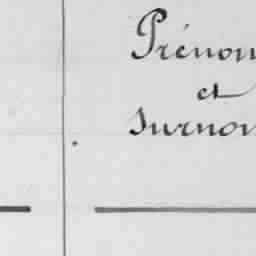 Prénom
et
Surnom